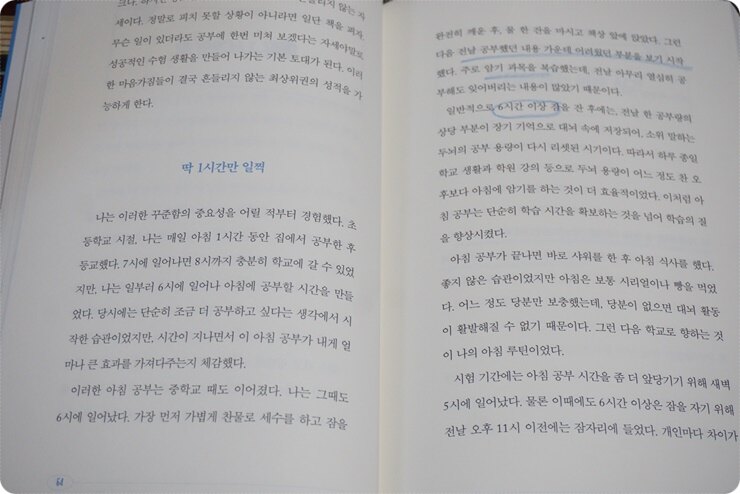 크나, 하지만 흔들리지 않는 자
세이다. 정말로 피치 못할 상황이 아니라면 일단 책을 펴자.
무슨 일이 있더라도 공부에 한번 미쳐 보겠다는 자세야말로
성공적인 수험 생활을 만들어 나가는 기본 토대가 된다. 이러
한 마음가짐들이 결국 흔들리지 않는 최상위권의 성적을 가
능하게 한다.
딱 1시간만 일찍
나는 이러한 꾸준함의 중요성을 어릴 적부터 경험했다. 초
등학교 시절, 나는 매일 아침 1시간 동안 집에서 공부한 후
등교했다. 7시에 일어나면 8시까지 충분히 학교에 갈 수 있었
지만, 나는 일부러 6시에 일어나 아침에 공부할 시간을 만들
었다. 당시에는 단순히 조금 더 공부하고 싶다는 생각에서 시
작한 습관이었지만, 시간이 지나면서 이 아침 공부가 내게 얼
마나 큰 효과를 가져다주는지 체감했다.
이러한 아침 공부는 중학교 때도 이어졌다. 나는 그때도
6시에 일어났다. 가장 먼저 가볍게 찬물로 세수를 하고 잠을
완전히 깨운 후, 물 한 잔을 마시고 책상 앞에 앉았다. 그런
다음 전날 공부했던 내용 가운데 어려웠던 부분을 보기 시작
했다. 주로 암기 과목을 복습했는데, 전날 아무리 열심히 공
부해도 잊어버리는 내용이 많았기 때문이다.
일반적으로 6시간 이상 잠을 잔 후에는, 전날 한 공부량의
상당 부분이 장기 기억으로 대뇌 속에 저장되어, 소위 말하는
두뇌의 공부 용량이 다시 리셋된 시기이다. 따라서 하루 종일
학교 생활과 학원 강의 등으로 두뇌 용량이 어느 정도 찬 오
후보다 아침에 암기를 하는 것이 더 효율적이었다. 이처럼 아
침 공부는 단순히 학습 시간을 확보하는 것을 넘어 학습의 질
을 향상시켰다.
아침 공부가 끝나면 바로 샤워를 한 후 아침 식사를 했다.
좋지 않은 습관이었지만 아침은 보통 시리얼이나 빵을 먹었
다. 어느 정도 당분만 보충했는데, 당분이 없으면 대뇌 활동
이 활발해질 수 없기 때문이다. 그런 다음 학교로 향하는 것
이 나의 아침 루틴이었다.
시험 기간에는 아침 공부 시간을 좀 더 앞당기기 위해 새벽
5시에 일어났다. 물론 이때에도 6시간 이상은 잠을 자기 위해
전날 오후 11시 이전에는 잠자리에 들었다. 개인마다 차이가